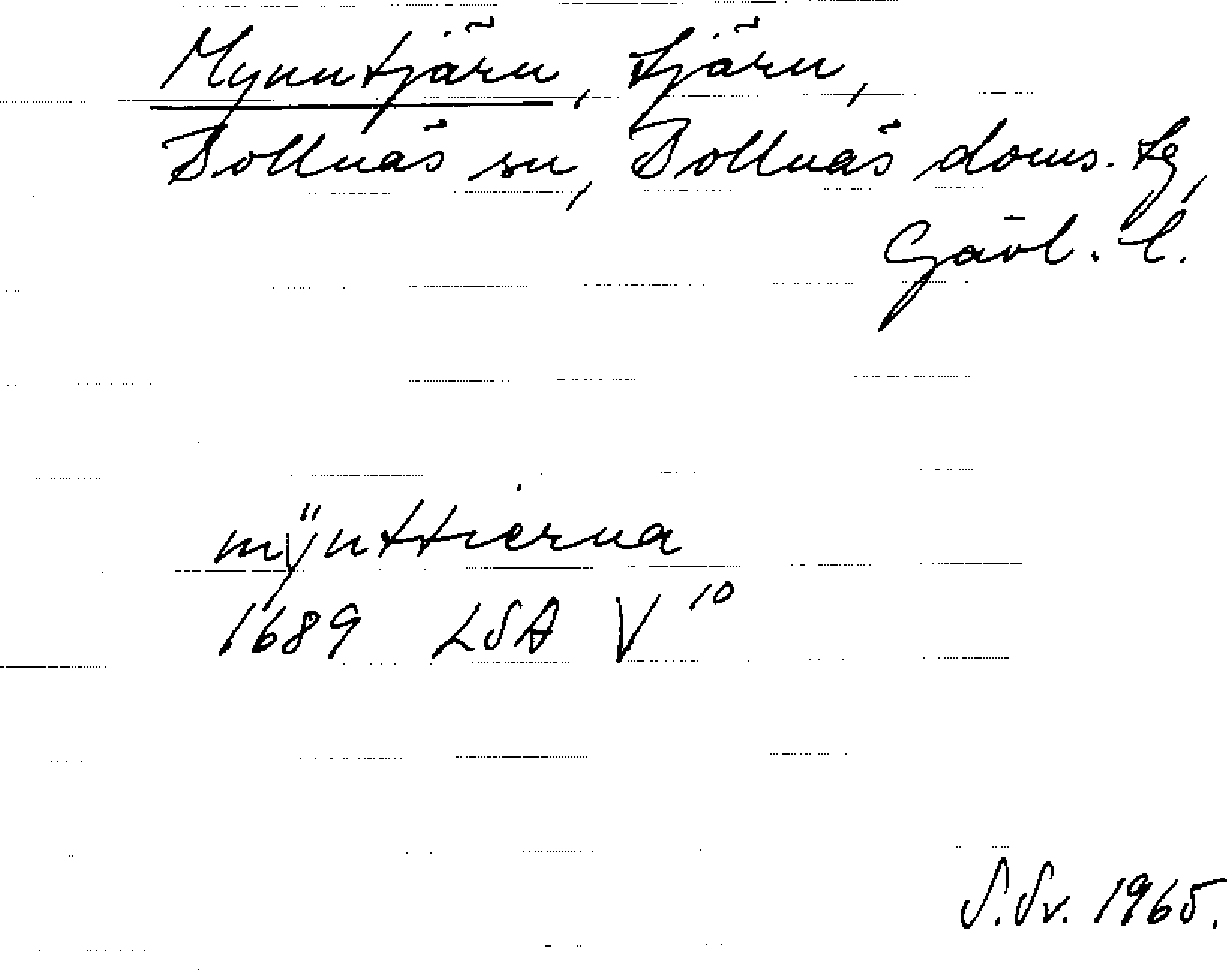 Mynntjärn, tjärn,
Bollnäs sn, Bollnäs doms. tg,
Gävl. l.
mÿnttierna
1689 LSA V 10
S. Sv. 1965.